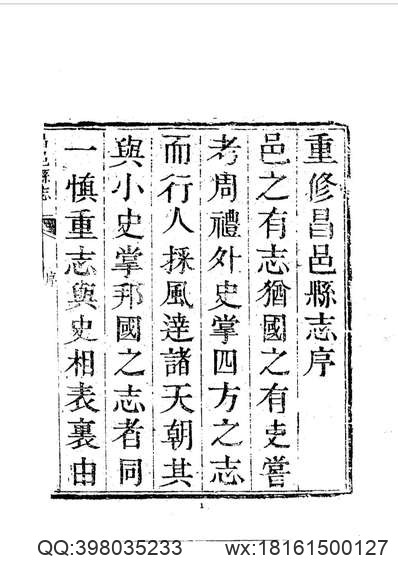 重修昌邑縣志序
邑之有志猶國之有史嘗
考周禮外史掌四方之志
而行人採風達諸天朝其
與小史掌邦國之志者同
一慎重志與史相表裏由
昌邑縣志
序
1
QQ:398035233 wx:18161500127